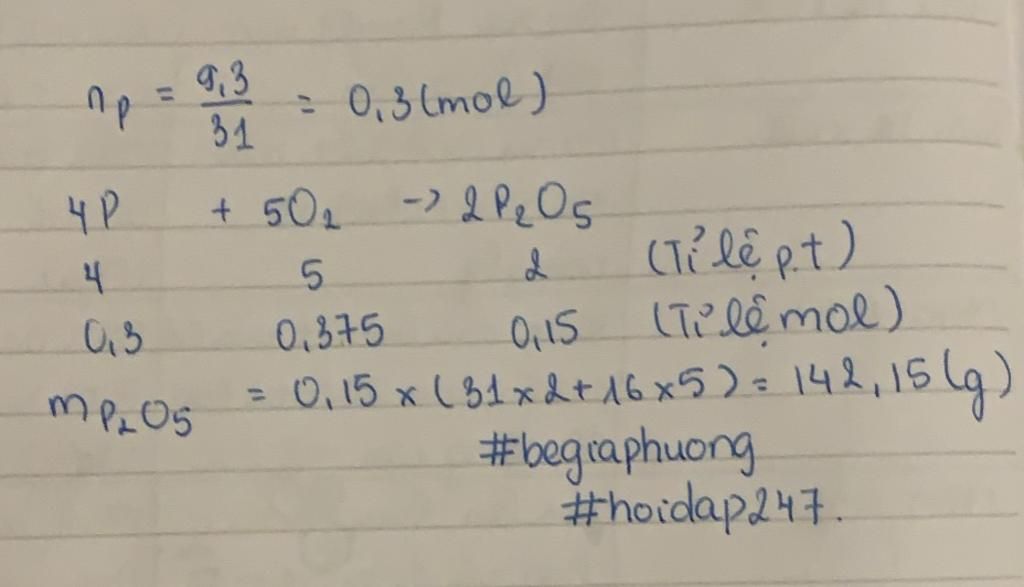 nP = 9,3/31 = 0,3 (mol)
4P + 5O2 -> 2P2O5
4 5 2 (Tỉ lệ p.t)
0,3 0,375 0,15 (Tỉ lệ mol)
mP2O5 = 0,15 x (31 x 2 + 16 x 5) = 142,15 (g)
#begiaphuong
#hoidap247.